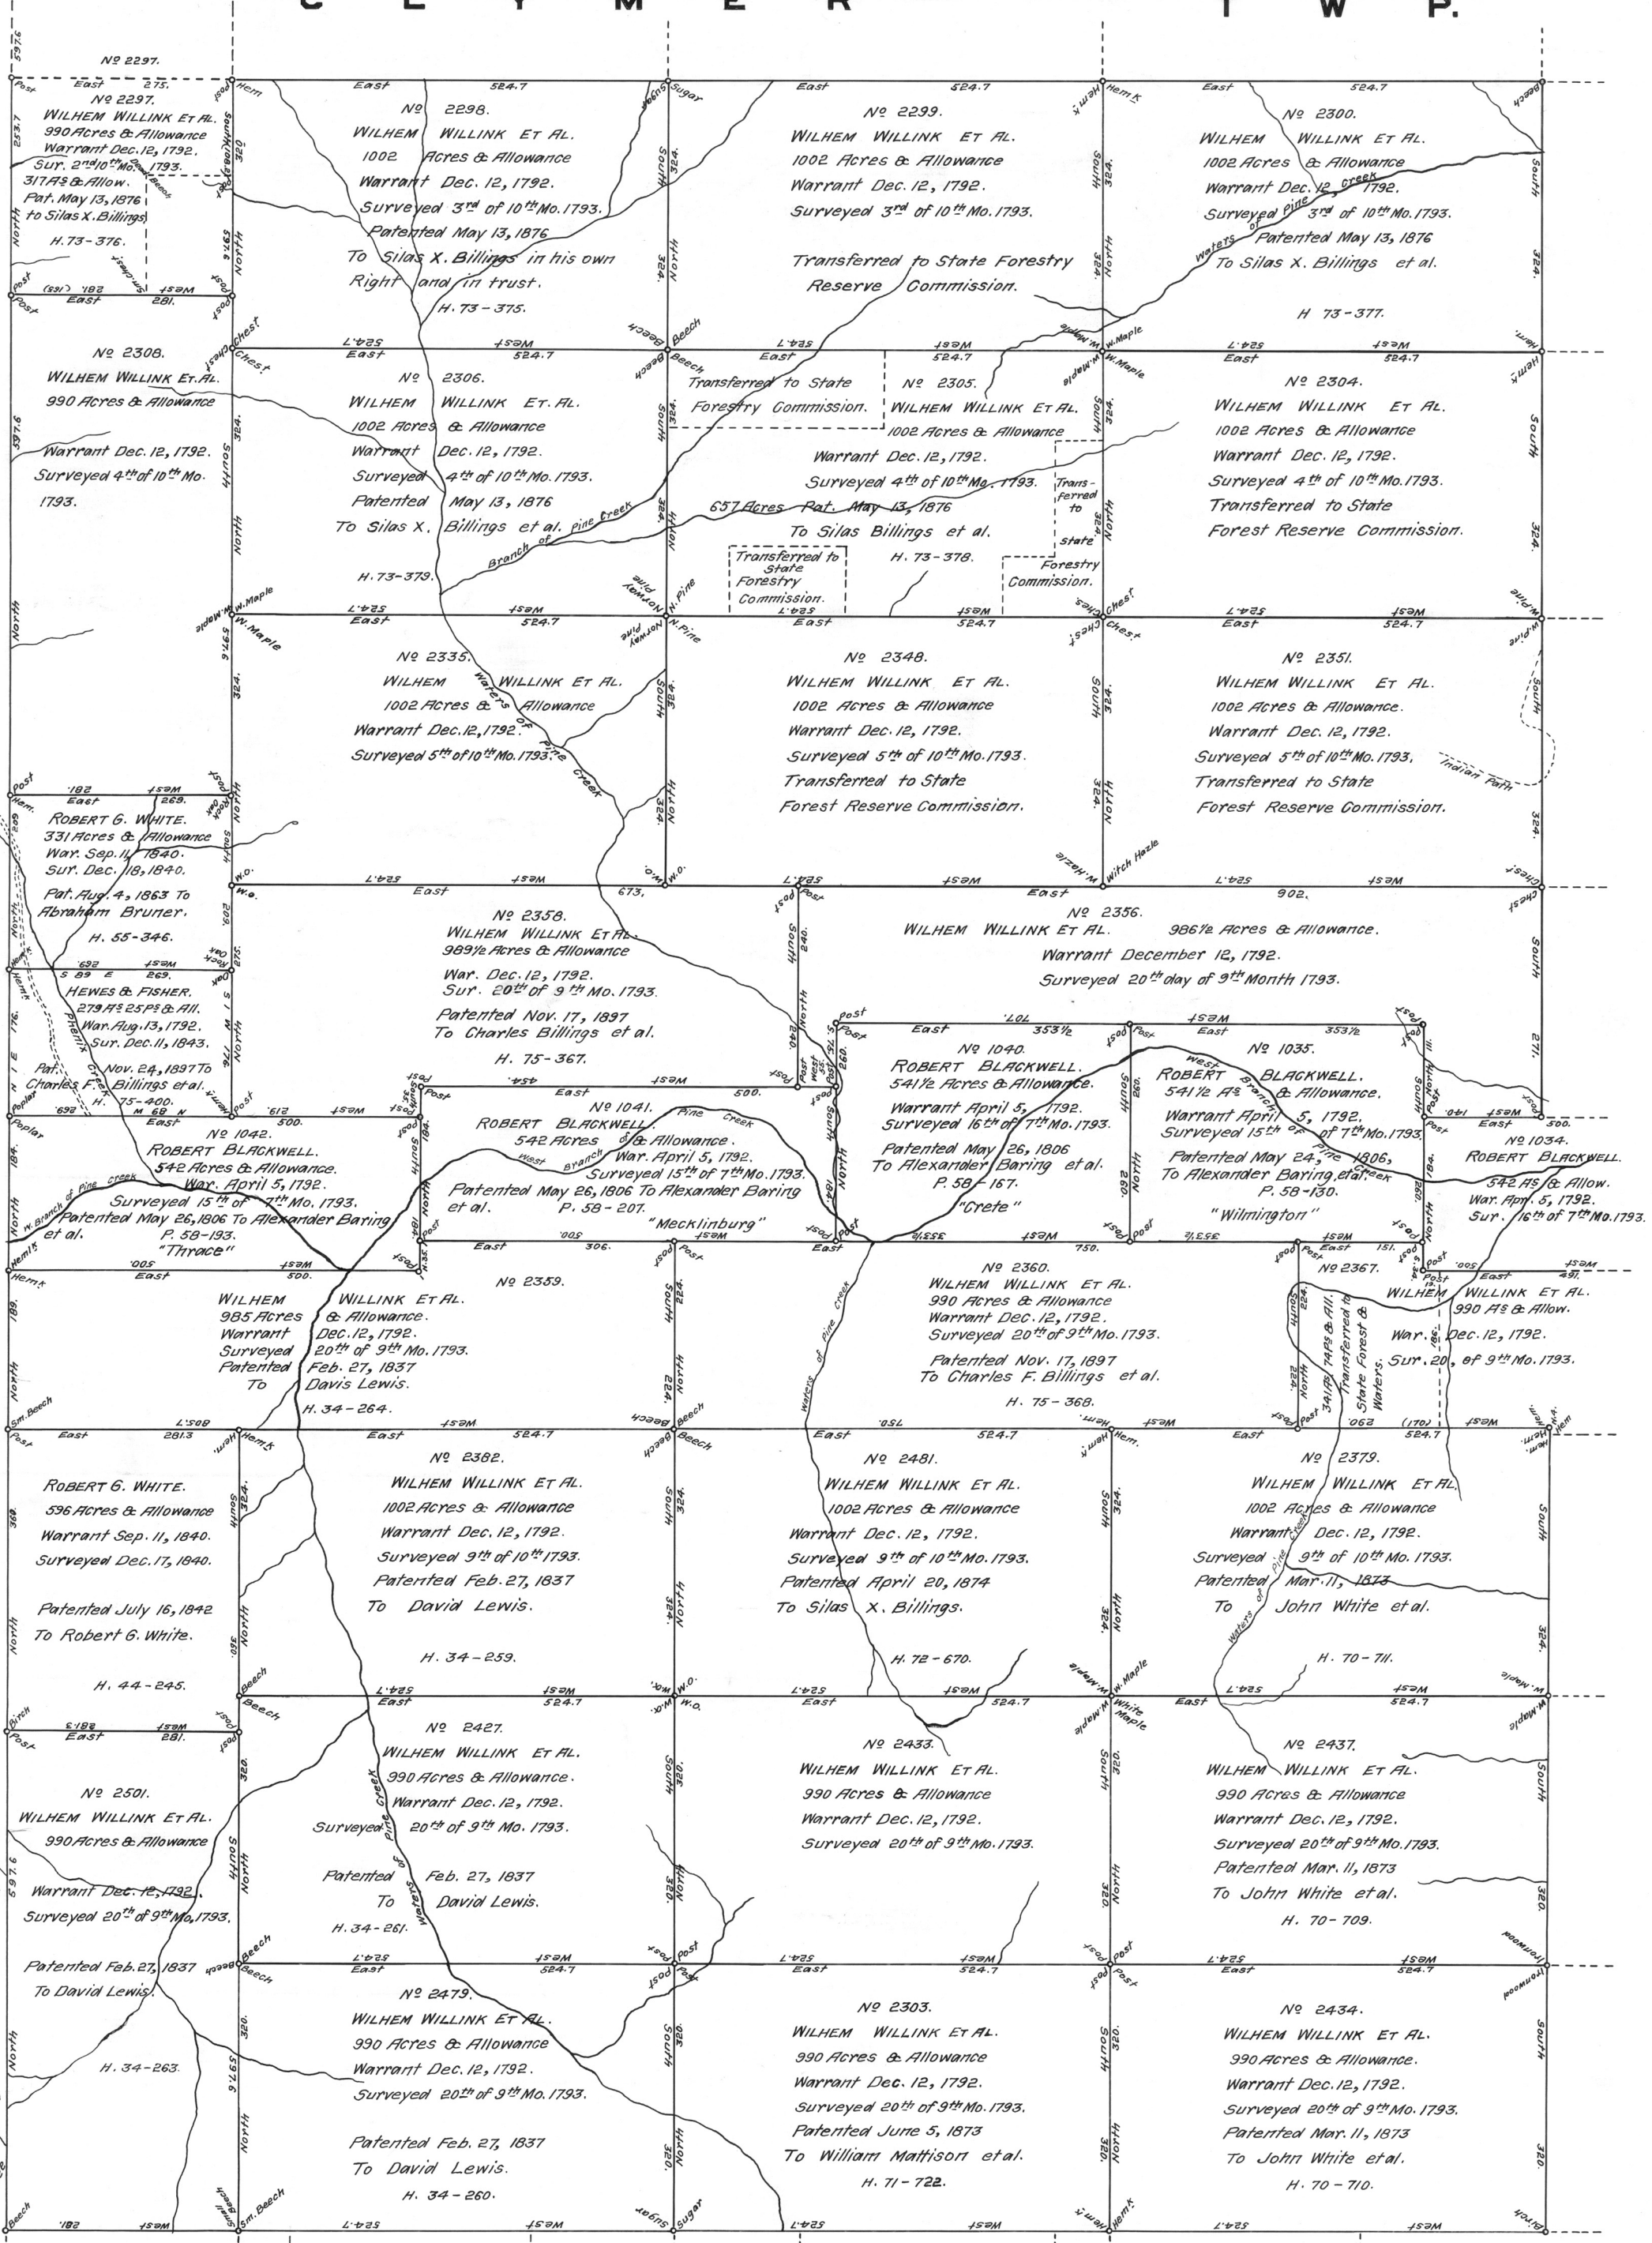 CLYMER TWP.
Nº 2297.
East 275.
Nº 2297.
WILHEM WILLINK ET AL.
990 Acres & Allowance
Warrant Dec. 12, 1792.
Sur. 2nd 10th Mo. 1793.
317 As & Allow.
Pat. May 13, 1876
to Silas X. Billings
H. 73-376.
Nº 2298.
WILHEM WILLINK ET AL.
1002 Acres & Allowance
Warrant Dec. 12, 1792.
Surveyed 3rd of 10th Mo. 1793.
Patented May 13, 1876
To Silas X. Billings in his own
Right and in trust.
H. 73-375.
Nº 2299.
WILHEM WILLINK ET AL.
1002 Acres & Allowance
Warrant Dec. 12, 1792.
Surveyed 3rd of 10th Mo. 1793.
Transferred to State Forestry
Reserve Commission.
Nº 2300.
WILHEM WILLINK ET AL.
1002 Acres & Allowance
Warrant Dec. 12, 1792.
Surveyed 3rd of 10th Mo. 1793.
Patented May 13, 1876
To Silas X. Billings et al.
H 73-377.
Waters of Pine Creek
Nº 2308.
WILHEM WILLINK ET. AL.
990 Acres & Allowance
Warrant Dec. 12, 1792.
Surveyed 4th of 10th Mo.
1793.
Nº 2306.
WILHEM WILLINK ET. AL.
1002 Acres & Allowance
Warrant Dec. 12, 1792.
Surveyed 4th of 10th Mo. 1793.
Patented May 13, 1876
To Silas X. Billings et al.
H. 73-379.
Branch of Pine Creek
Transferred to State
Forestry Commission.
Nº 2305.
WILHEM WILLINK ET AL.
1002 Acres & Allowance
Warrant Dec. 12, 1792.
Surveyed 4th of 10th Mo. 1793.
657 Acres Pat. May 13, 1876
To Silas Billings et al.
H. 73-378.
Transferred to
State
Forestry
Commission.
Trans-
ferred
to
State
Forestry
Commission.
Nº 2304.
WILHEM WILLINK ET AL.
1002 Acres & Allowance
Warrant Dec. 12, 1792.
Surveyed 4th of 10th Mo. 1793.
Transferred to State
Forest Reserve Commission.
Nº 2335.
WILHEM WILLINK ET AL.
1002 Acres & Allowance
Warrant Dec. 12, 1792.
Surveyed 5th of 10th Mo. 1793.
Waters of Pine Creek
Nº 2348.
WILHEM WILLINK ET AL.
1002 Acres & Allowance
Warrant Dec. 12, 1792.
Surveyed 5th of 10th Mo. 1793.
Transferred to State
Forest Reserve Commission.
Nº 2351.
WILHEM WILLINK ET AL.
1002 Acres & Allowance.
Warrant Dec. 12, 1792.
Surveyed 5th of 10th Mo. 1793.
Transferred to State
Forest Reserve Commission.
Indian Path
ROBERT G. WHITE.
331 Acres & Allowance
War. Sep. 11, 1840.
Sur. Dec. 18, 1840.
Pat. Aug. 4, 1863 To
Abraham Bruner.
H. 55-346.
S 89 E 269.
HEWES & FISHER.
279 As 25 Ps & All.
War. Aug. 13, 1792.
Sur. Dec. 11, 1843.
Pat. Nov. 24, 1897 To
Charles F. Billings et al.
H. 75-400.
Phenix Creek
Nº 2358.
WILHEM WILLINK ET AL.
989½ Acres & Allowance
War. Dec. 12, 1792.
Sur. 20th of 9th Mo. 1793.
Patented Nov. 17, 1897
To Charles Billings et al.
H. 75-367.
Nº 2356.
WILHEM WILLINK ET AL. 986½ Acres & Allowance.
Warrant December 12, 1792.
Surveyed 20th day of 9th Month 1793.
Nº 1042.
ROBERT BLACKWELL.
542 Acres & Allowance.
War. April 5, 1792.
Surveyed 15th of 7th Mo. 1793.
Patented May 26, 1806 To Alexander Baring
et al. P. 58-193.
"Thrace"
W. Branch of Pine Creek
Nº 1041.
ROBERT BLACKWELL.
542 Acres & Allowance.
War. April 5, 1792.
Surveyed 15th of 7th Mo. 1793.
Patented May 26, 1806 To Alexander Baring
et al. P. 58-207.
"Mecklinburg"
West Branch of Pine Creek
Nº 1040.
ROBERT BLACKWELL.
541½ Acres & Allowance.
Warrant April 5, 1792.
Surveyed 16th of 7th Mo. 1793.
Patented May 26, 1806
To Alexander Baring et al.
P. 58-167.
"Crete"
Nº 1035.
ROBERT BLACKWELL.
541½ As & Allowance.
Warrant April 5, 1792.
Surveyed 15th of 7th Mo. 1793.
Patented May 24, 1806,
To Alexander Baring, et al.
P. 58-130.
"Wilmington"
West Branch of Pine Creek
Nº 1034.
ROBERT BLACKWELL.
542 As & Allow.
War. Apr. 5, 1792.
Sur. 16th of 7th Mo. 1793.
Nº 2359.
WILHEM WILLINK ET AL.
985 Acres & Allowance.
Warrant Dec. 12, 1792.
Surveyed 20th of 9th Mo. 1793.
Patented Feb. 27, 1837
To Davis Lewis.
H. 34-264.
Nº 2360.
WILHEM WILLINK ET AL.
990 Acres & Allowance
Warrant Dec. 12, 1792.
Surveyed 20th of 9th Mo. 1793.
Patented Nov. 17, 1897
To Charles F. Billings et al.
H. 75-368.
Waters of Pine Creek
Nº 2367.
WILHEM WILLINK ET AL.
990 As & Allow.
War. Dec. 12, 1792.
Sur. 20, of 9th Mo. 1793.
341 As 74 Ps & All.
Transferred to
State Forest &
Waters.
ROBERT G. WHITE.
596 Acres & Allowance
Warrant Sep. 11, 1840.
Surveyed Dec. 17, 1840.
Patented July 16, 1842
To Robert G. White.
H. 44-245.
Nº 2382.
WILHEM WILLINK ET AL.
1002 Acres & Allowance
Warrant Dec. 12, 1792.
Surveyed 9th of 10th 1793.
Patented Feb. 27, 1837
To David Lewis.
H. 34-259.
Nº 2481.
WILHEM WILLINK ET AL.
1002 Acres & Allowance
Warrant Dec. 12, 1792.
Surveyed 9th of 10th Mo. 1793.
Patented April 20, 1874
To Silas X. Billings.
H. 72-670.
Nº 2379.
WILHEM WILLINK ET AL.
1002 Acres & Allowance
Warrant Dec. 12, 1792.
Surveyed 9th of 10th Mo. 1793.
Patented Mar. 11, 1873
To John White et al.
H. 70-711.
Waters of Pine Creek
Nº 2501.
WILHEM WILLINK ET AL.
990 Acres & Allowance
Warrant Dec. 12, 1792.
Surveyed 20th of 9th Mo. 1793.
Patented Feb. 27, 1837
To David Lewis.
H. 34-263.
Nº 2427.
WILHEM WILLINK ET AL.
990 Acres & Allowance.
Warrant Dec. 12, 1792.
Surveyed 20th of 9th Mo. 1793.
Patented Feb. 27, 1837
To David Lewis.
H. 34-261.
Waters of Pine Creek
Nº 2433.
WILHEM WILLINK ET AL.
990 Acres & Allowance
Warrant Dec. 12, 1792.
Surveyed 20th of 9th Mo. 1793.
Nº 2437.
WILHEM WILLINK ET AL.
990 Acres & Allowance
Warrant Dec. 12, 1792.
Surveyed 20th of 9th Mo. 1793.
Patented Mar. 11, 1873
To John White et al.
H. 70-709.
Nº 2479.
WILHEM WILLINK ET AL.
990 Acres & Allowance
Warrant Dec. 12, 1792.
Surveyed 20th of 9th Mo. 1793.
Patented Feb. 27, 1837
To David Lewis.
H. 34-260.
Nº 2303.
WILHEM WILLINK ET AL.
990 Acres & Allowance
Warrant Dec. 12, 1792.
Surveyed 20th of 9th Mo. 1793.
Patented June 5, 1873
To William Mattison et al.
H. 71-722.
Nº 2434.
WILHEM WILLINK ET AL.
990 Acres & Allowance.
Warrant Dec. 12, 1792.
Surveyed 20th of 9th Mo. 1793.
Patented Mar. 11, 1873
To John White et al.
H. 70-710.